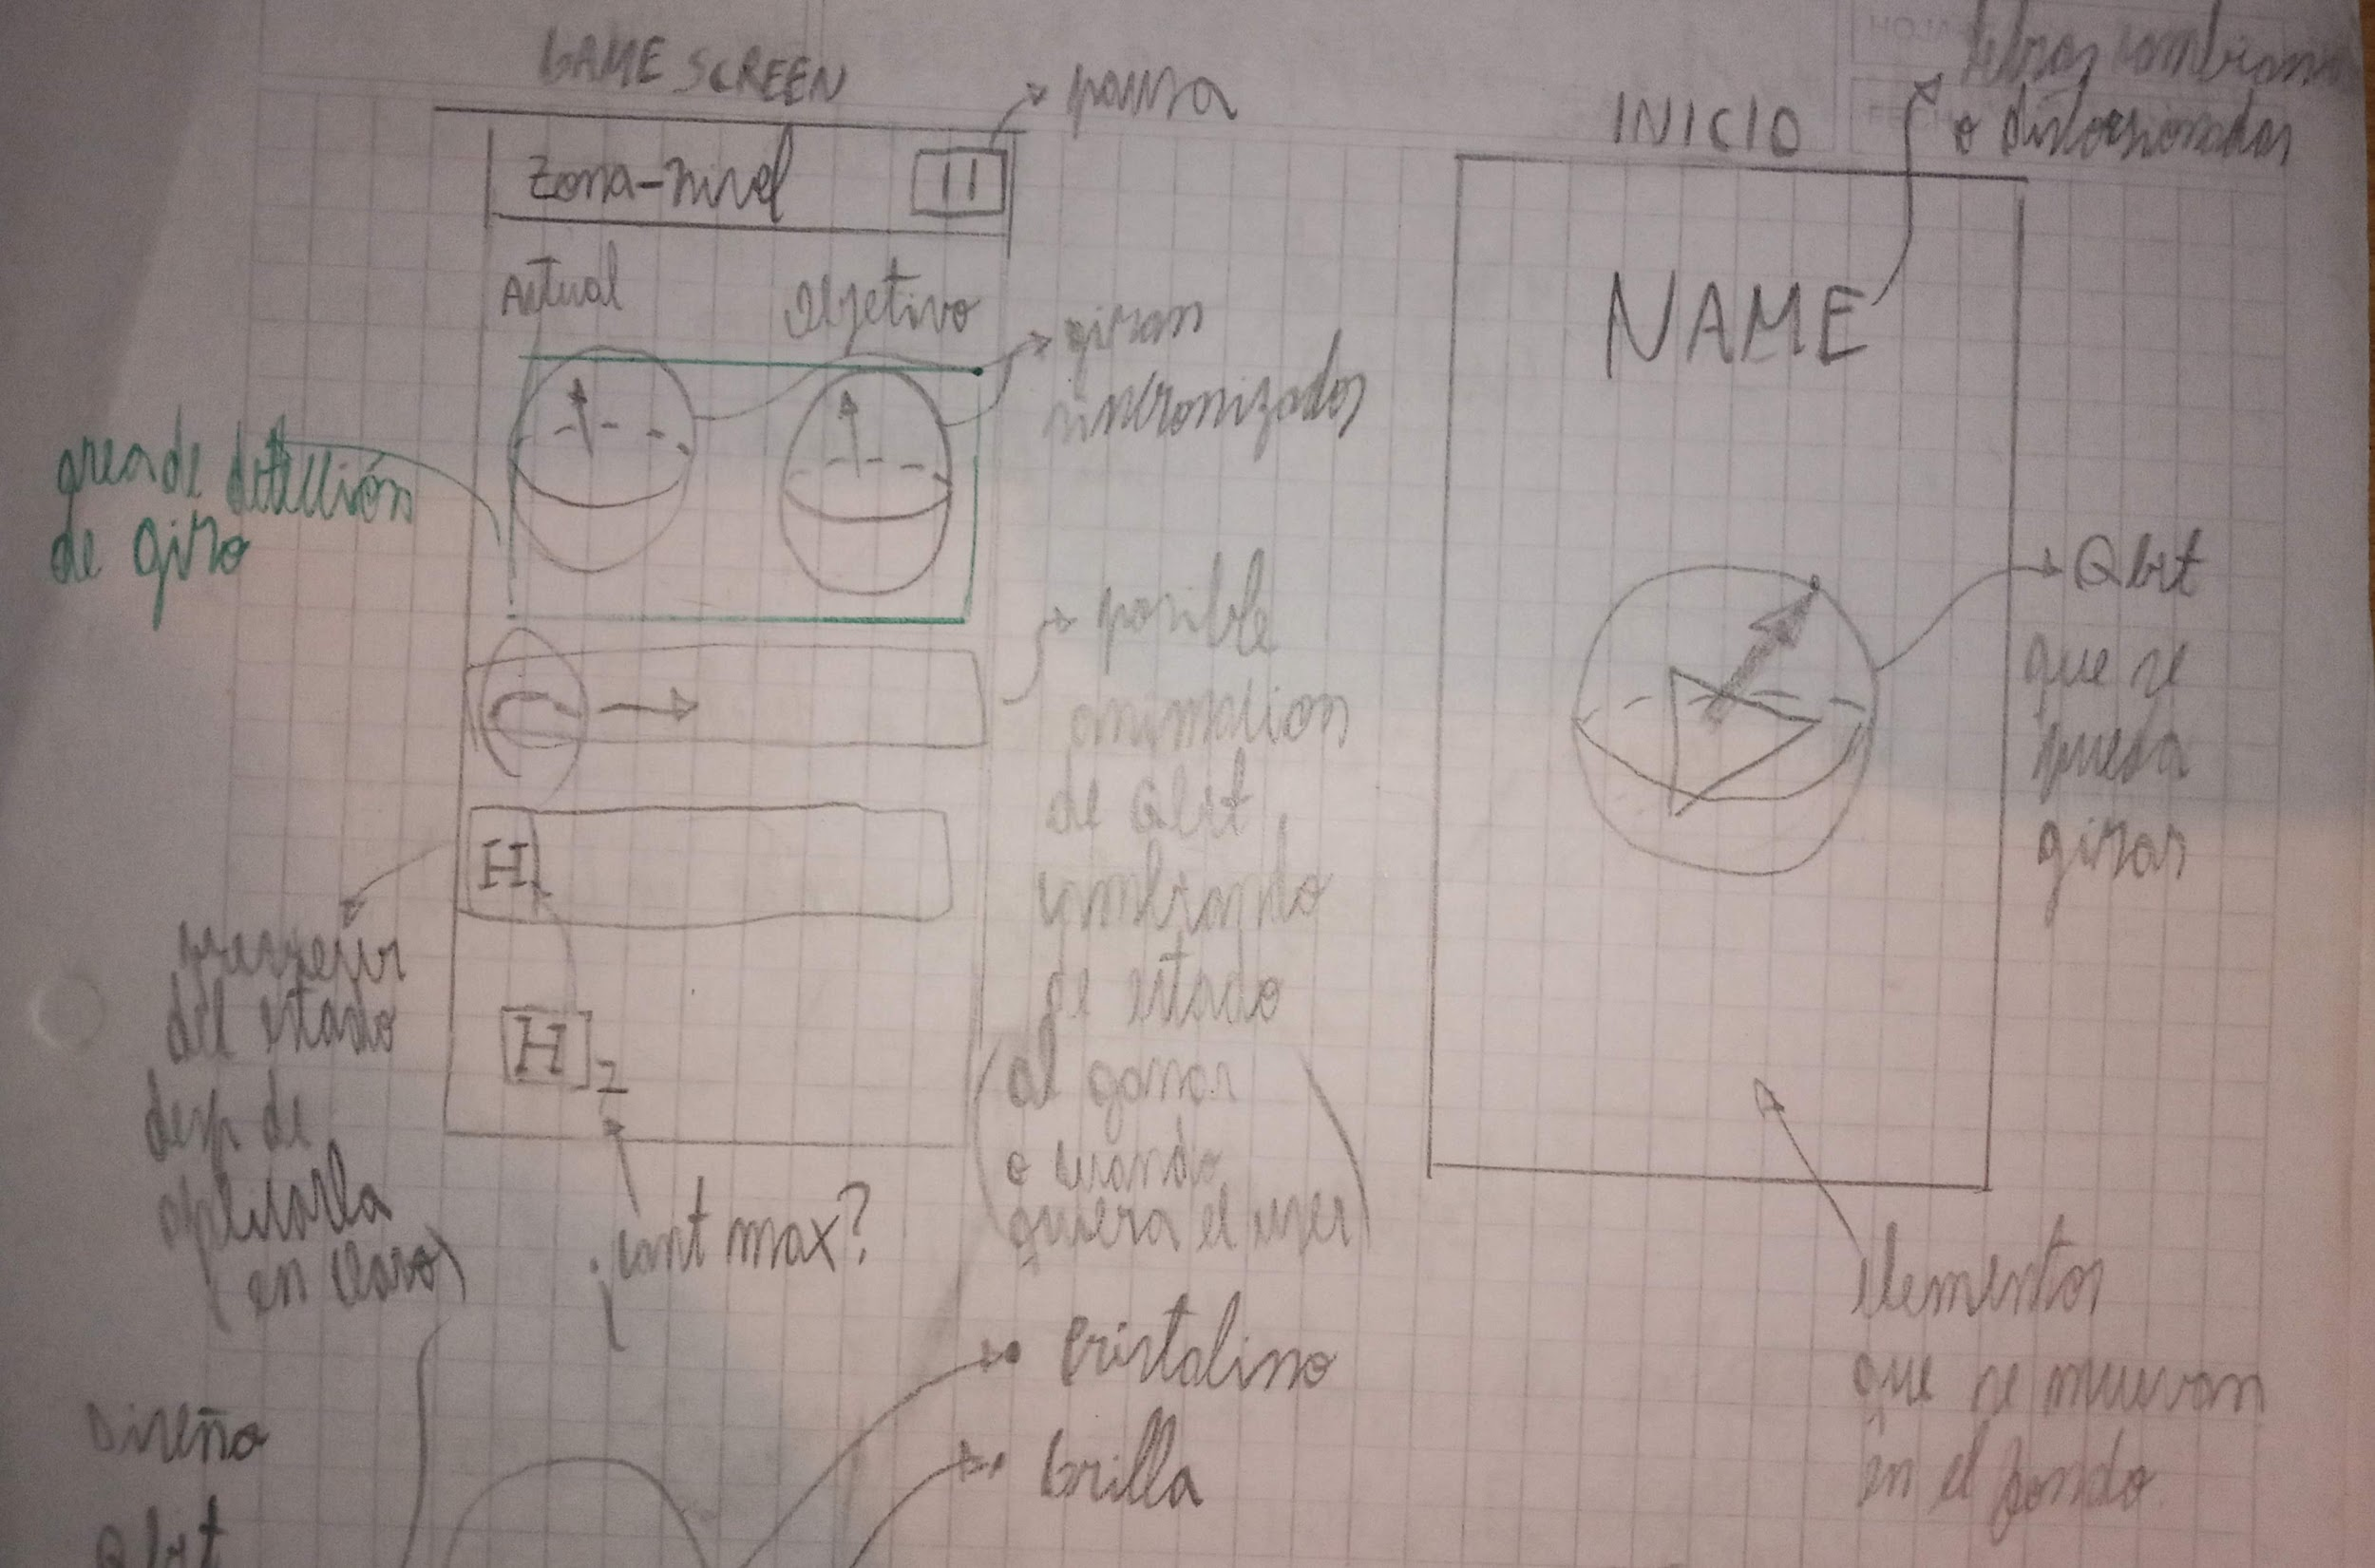 GAME SCREEN
pausa
Zona-nivel
Actual
Objetivo
giran
sincronizados
area de detección
de giro
posible
animacion
de Qbit
cambiando
de estado
(al ganar
o cuando
quiera el user)
H
preverir
del estado
desp de
aplicarla
(en claro)
[H]2
¿cant max?
INICIO
letras cambiando
o distorsionadas
NAME
Qbit
que se
pueda
girar
elementos
que se muevan
en el fondo
Diseño
Qbit
cristalino
brilla